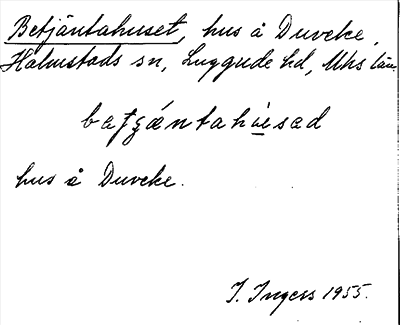 Betjäntahuset, hus å Duveke,
Halmstads sn, Luggude hd, Mhs län.
hus å Duveke.
I. Ingers 1955.